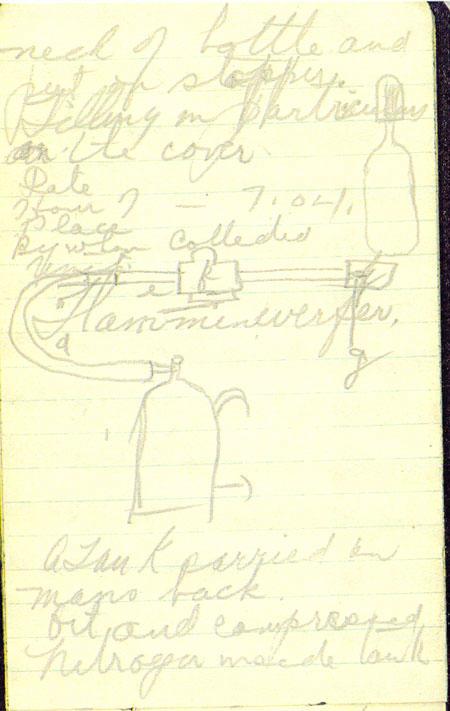 neck of bottle and
put on stopper.
Filling in particulars
on the cover
Date
Hour of —
Place
By whom collected
Flammineverfer.
e
k
a
g
A Tank carried on
mans back.
Oil and compressed
Nitrogen inside tank